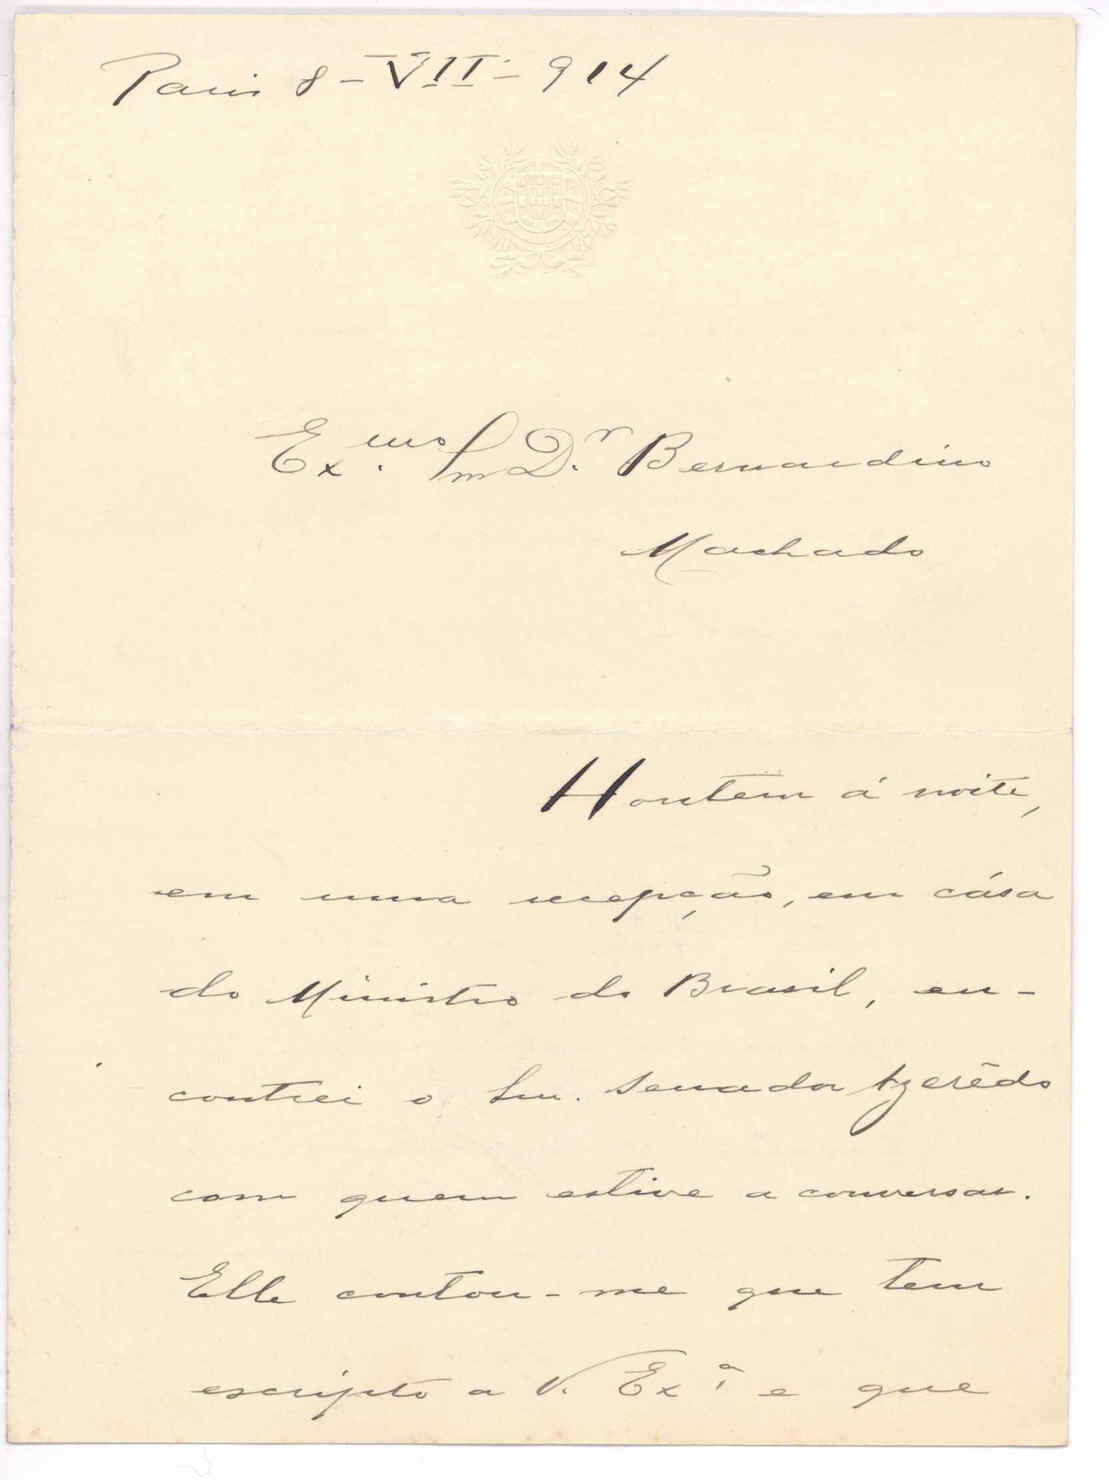 Paris 8-VII-914
Ex.mo Snr D.r Bernardino
Machado
Hontem á noite,
em uma recepção, em cása
do Ministro do Brasil, en-
contrei o Snr. Senador Azerêdo
com quem estive a conversar.
Elle contou-me que tem
escripto a V. Ex.ª e que